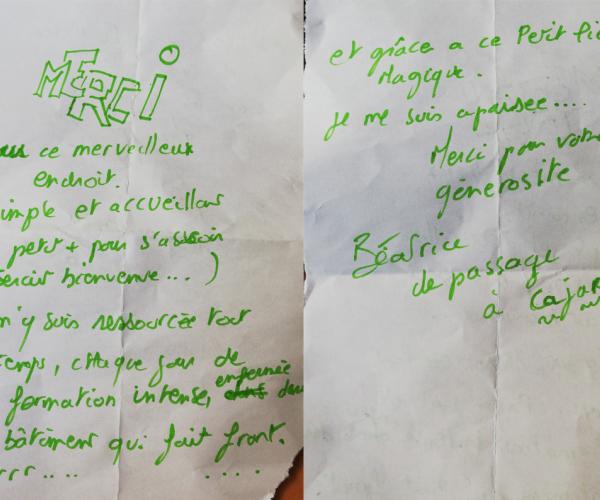 MERCI
ce merveilleux
endroit.
imple et accueillant
petit + pour s'assoir
serait bienvenue... )
m'y suis ressourcée tout
temps, chaque jour de
formation intense, enfermée
bâtiment qui fait front.
rrr.... ....
et grâce a ce Petit
Magique.
Je me suis apaisée....
Merci pour votre
générosité
Béatrice
de passage
à Cajar